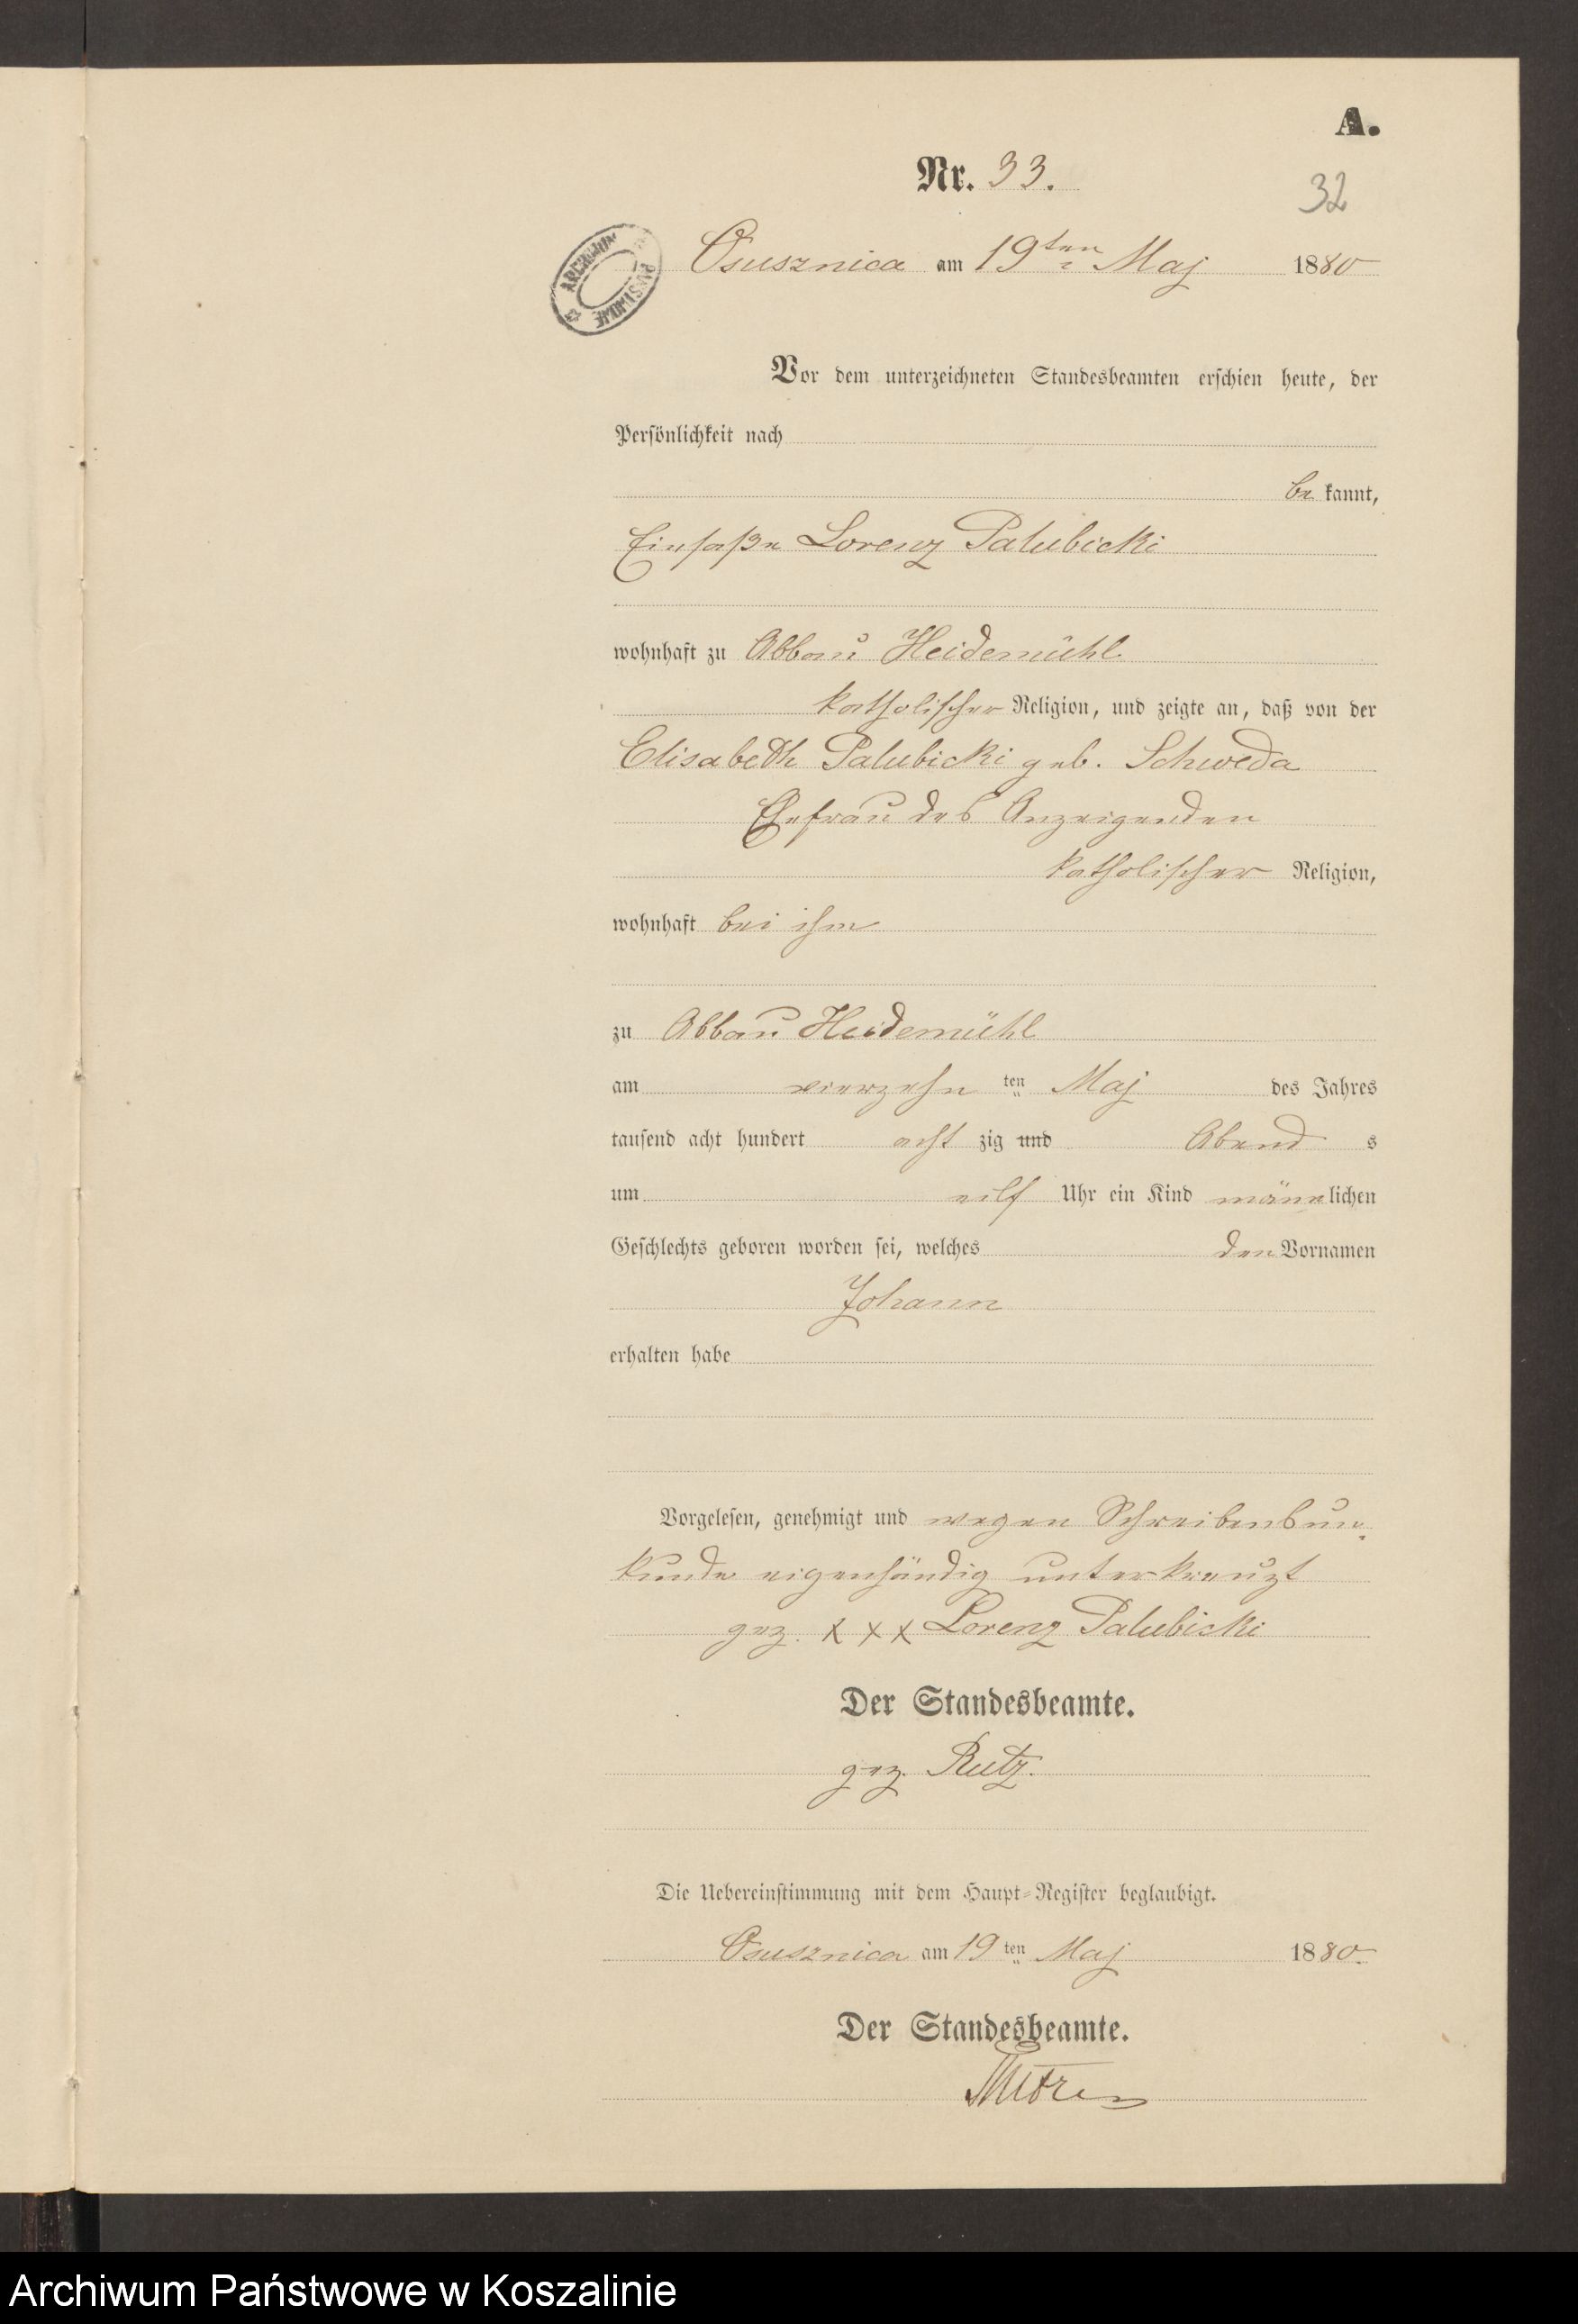 A.
Nr. 33.
32
ARCHIWUM PAŃSTWOWE
Osusznica am 19ten Maj 1880
Vor dem unterzeichneten Standesbeamten erschien heute, der
Persönlichkeit nach
be kannt,
Einsaße Lorenz Palubicki
wohnhaft zu Abbau Heidemühl
katholischer Religion, und zeigte an, daß von der
Elisabeth Palubicki geb. Schweda
Ehefrau des Anzeigenden
katholischer Religion,
wohnhaft bei ihm
zu Abbau Heidemühl
am vierzehn ten Maj des Jahres
tausend acht hundert acht zig und Abend s
um eilf Uhr ein Kind männlichen
Geschlechts geboren worden sei, welches den Vornamen
Johann
erhalten habe
Vorgelesen, genehmigt und wegen Schreibensun-
kunde eigenhändig unterkreuzt
gez. x x x Lorenz Palubicki
Der Standesbeamte.
gez. Rutz.
Die Uebereinstimmung mit dem Haupt-Register beglaubigt.
Osusznica am 19 ten Maj 1880.
Der Standesbeamte.
Archiwum Państwowe w Koszalinie